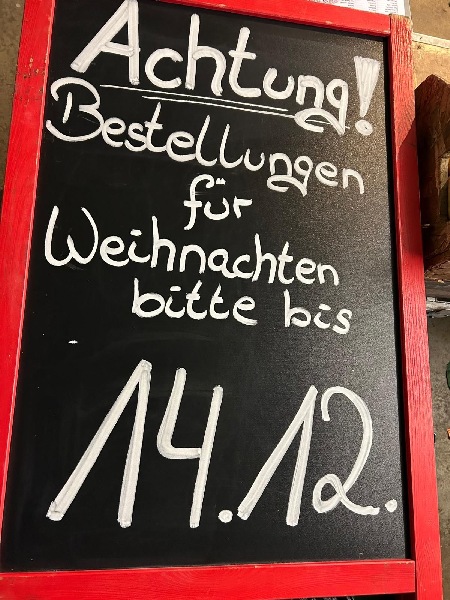 Achtung!
Bestellungen
für
Weihnachten
bitte bis
14.12.